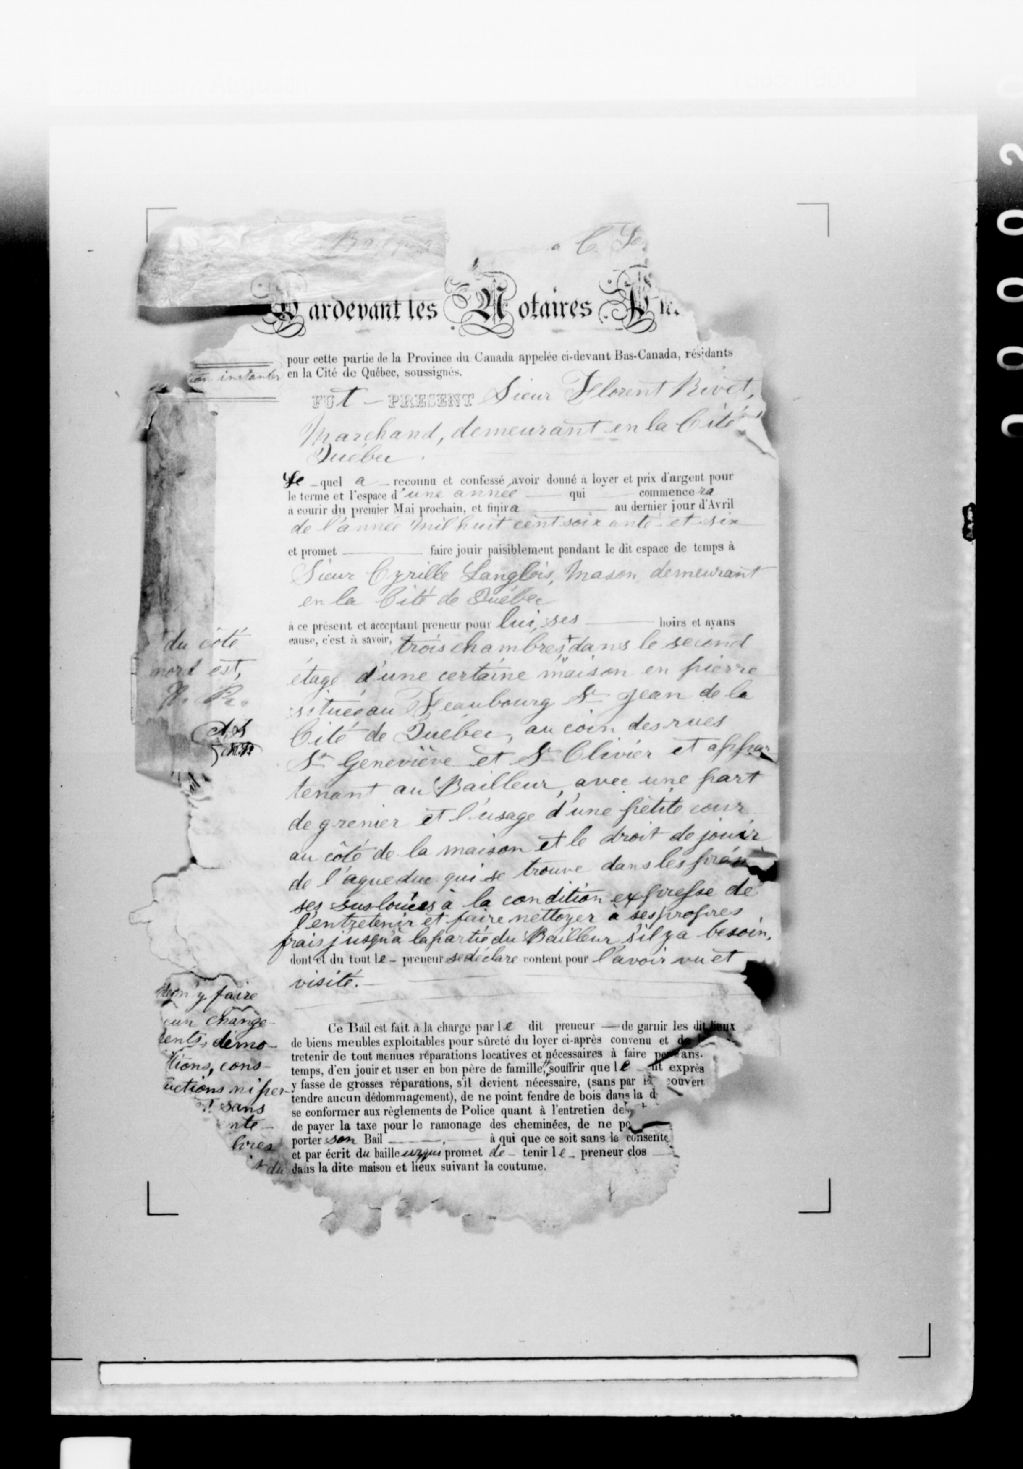 Pardevant les Notaires
pour cette partie de la Province du Canada appelée ci-devant Bas-Canada, résidants
en la Cité de Québec, soussignés.
FUt — PRESENT Sieur Florent Rivet,
Marchand, demeurant en la Cité
Québec.
Le quel a reconnu et confessé avoir donné à loyer et prix d'argent pour
le terme et l'espace d'une année qui commencera
à courir du premier Mai prochain, et finira au dernier jour d'Avril
de l'année mil huit cent soixante et six
et promet faire jouir paisiblement pendant le dit espace de temps à
Sieur Cyrille Langlois, Mason, demeurant
en la Cité de Québec
à ce présent et acceptant preneur pour lui, ses hoirs et ayans
cause, c'est à savoir, trois chambres dans le second
étage d'une certaine maison en pierre
située au Feaubourg St Jean de la
Cité de Québec, au coin des rues
Ste Geneviève et St Olivier et appar
tenant au Bailleur, avec une part
de grenier et l'usage d'une petite cour
au côté de la maison et le droit de jouir
de l'aqueduc qui se trouve dans les
ses susloués à la condition expresse de
l'entretenir et faire nettoyer à ses propres
frais jusqu'à la partie du Bailleur s'il y a besoin,
dont et du tout le preneur se déclare content pour l'avoir vu et
visité.
du côté
nord est,
Ce Bail est fait à la charge par le dit preneur — de garnir les dit lieux
de biens meubles exploitables pour sûreté du loyer ci-après convenu et
tretenir de tout menues réparations locatives et nécessaires à faire
temps, d'en jouir et user en bon père de famille, souffrir que le exprès
y fasse de grosses réparations, s'il devient nécessaire, (sans par
tendre aucun dédommagement), de ne point fendre de bois dans la
se conformer aux règlements de Police quant à l'entretien
de payer la taxe pour le ramonage des cheminées, de ne
porter son Bail à qui que ce soit sans le consente
et par écrit du bailleur promet de tenir le preneur clos
dans la dite maison et lieux suivant la coutume.
y faire
change
démo-
tions, cons-
uctions ni per-
sans